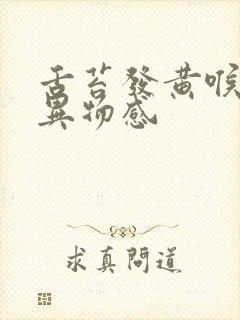 舌苔發黄喉
異物感
求真問道